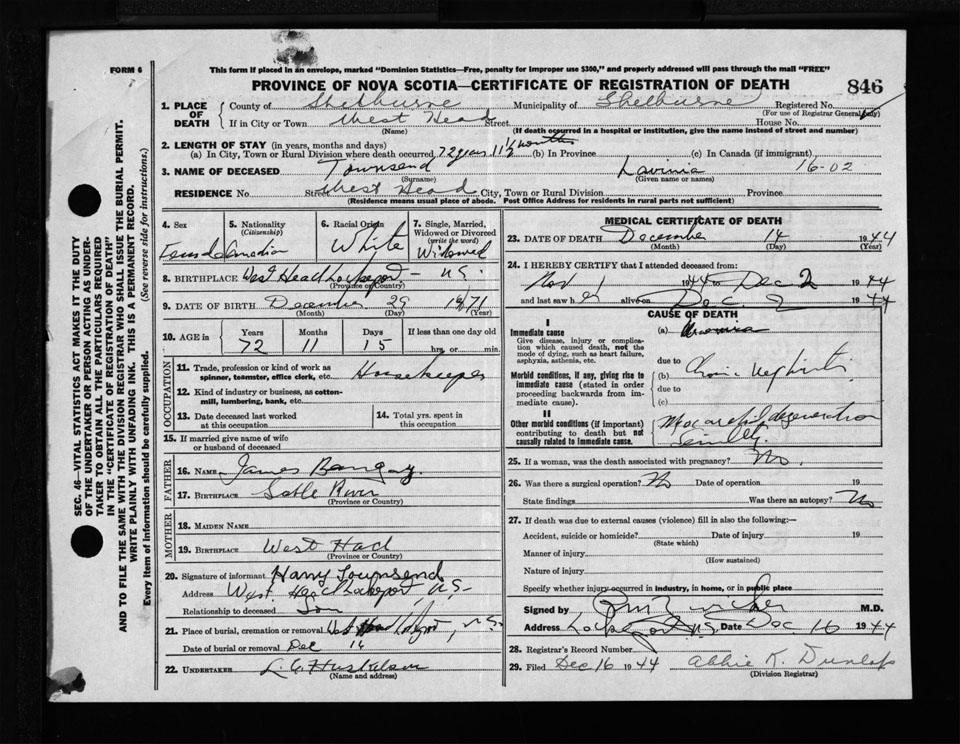 FORM 6
This form if placed in an envelope, marked "Dominion Statistics—Free, penalty for improper use $300," and properly addressed will pass through the mail "FREE"
PROVINCE OF NOVA SCOTIA—CERTIFICATE OF REGISTRATION OF DEATH
846
1. PLACE OF DEATH County of Shelburne Municipality of Shelburne Registered No.
(For use of Registrar General only)
If in City or Town West Head Street House No.
(Name) (If death occurred in a hospital or institution, give the name instead of street and number)
2. LENGTH OF STAY (in years, months and days)
(a) In City, Town or Rural Division where death occurred 72 years 11½ months (b) In Province (c) In Canada (if immigrant)
3. NAME OF DECEASED Townsend Lavinia 16-02
(Surname) (Given name or names)
RESIDENCE No. Street West Head City, Town or Rural Division Province
(Residence means usual place of abode. Post Office Address for residents in rural parts not sufficient)
4. Sex 5. Nationality (Citizenship) 6. Racial Origin 7. Single, Married, Widowed or Divorced (write the word)
Female Canadian White Widowed
8. BIRTHPLACE West Head Lockeport N.S.
(Province or Country)
9. DATE OF BIRTH December 29 1871
(Month) (Day) (Year)
10. AGE Years Months Days If less than one day old
72 11 15 hrs. or min.
OCCUPATION
11. Trade, profession or kind of work as spinner, teamster, office clerk, etc. Housekeeper
12. Kind of industry or business, as cotton-mill, lumbering, bank, etc.
13. Date deceased last worked at this occupation 14. Total yrs. spent in this occupation
15. If married give name of wife or husband of deceased
FATHER
16. NAME James
17. BIRTHPLACE Sable River
(Province or Country)
MOTHER
18. MAIDEN NAME
19. BIRTHPLACE West Head
(Province or Country)
20. Signature of informant Harry Townsend
Address West Head Lockeport, N.S.
Relationship to deceased Son
21. Place of burial, cremation or removal West Head Lockeport, N.S.
Date of burial or removal Dec 16
22. UNDERTAKER L. C.
(Name and address)
MEDICAL CERTIFICATE OF DEATH
23. DATE OF DEATH December 14 1944
(Month) (Day) (Year)
24. I HEREBY CERTIFY that I attended deceased from:
Nov 1 1944 to Dec 2 1944
and last saw her alive on Dec. 2 1944
CAUSE OF DEATH
I
Immediate cause
Give disease, injury or complication which caused death, not the mode of dying, such as heart failure, asphyxia, asthenia, etc.
(a) Uraemia
due to
Morbid conditions, if any, giving rise to immediate cause (stated in order proceeding backwards from immediate cause).
(b) Chronic Nephritis
due to
(c)
II
Other morbid conditions (if important) contributing to death but not causally related to immediate cause.
Myocardial degeneration
Senility.
25. If a woman, was the death associated with pregnancy? No.
26. Was there a surgical operation? No Date of operation 19
State findings Was there an autopsy? No
27. If death was due to external causes (violence) fill in also the following:—
Accident, suicide or homicide? Date of injury 19
(State which)
Manner of injury
(How sustained)
Nature of injury
Specify whether injury occurred in industry, in home, or in public place
Signed by M.D.
Address Lockeport N.S. Date Dec 16 1944
28. Registrar's Record Number
29. Filed Dec 16 1944 Abbie K. Dunlap
(Division Registrar)
SEC. 46—VITAL STATISTICS ACT MAKES IT THE DUTY
OF THE UNDERTAKER OR PERSON ACTING AS UNDER-
TAKER TO OBTAIN ALL THE PARTICULARS REQUIRED
IN THE "CERTIFICATE OF REGISTRATION OF DEATH"
AND TO FILE THE SAME WITH THE DIVISION REGISTRAR WHO SHALL ISSUE THE BURIAL PERMIT.
WRITE PLAINLY WITH UNFADING INK. THIS IS A PERMANENT RECORD.
Every item of information should be carefully supplied. (See reverse side for instructions.)